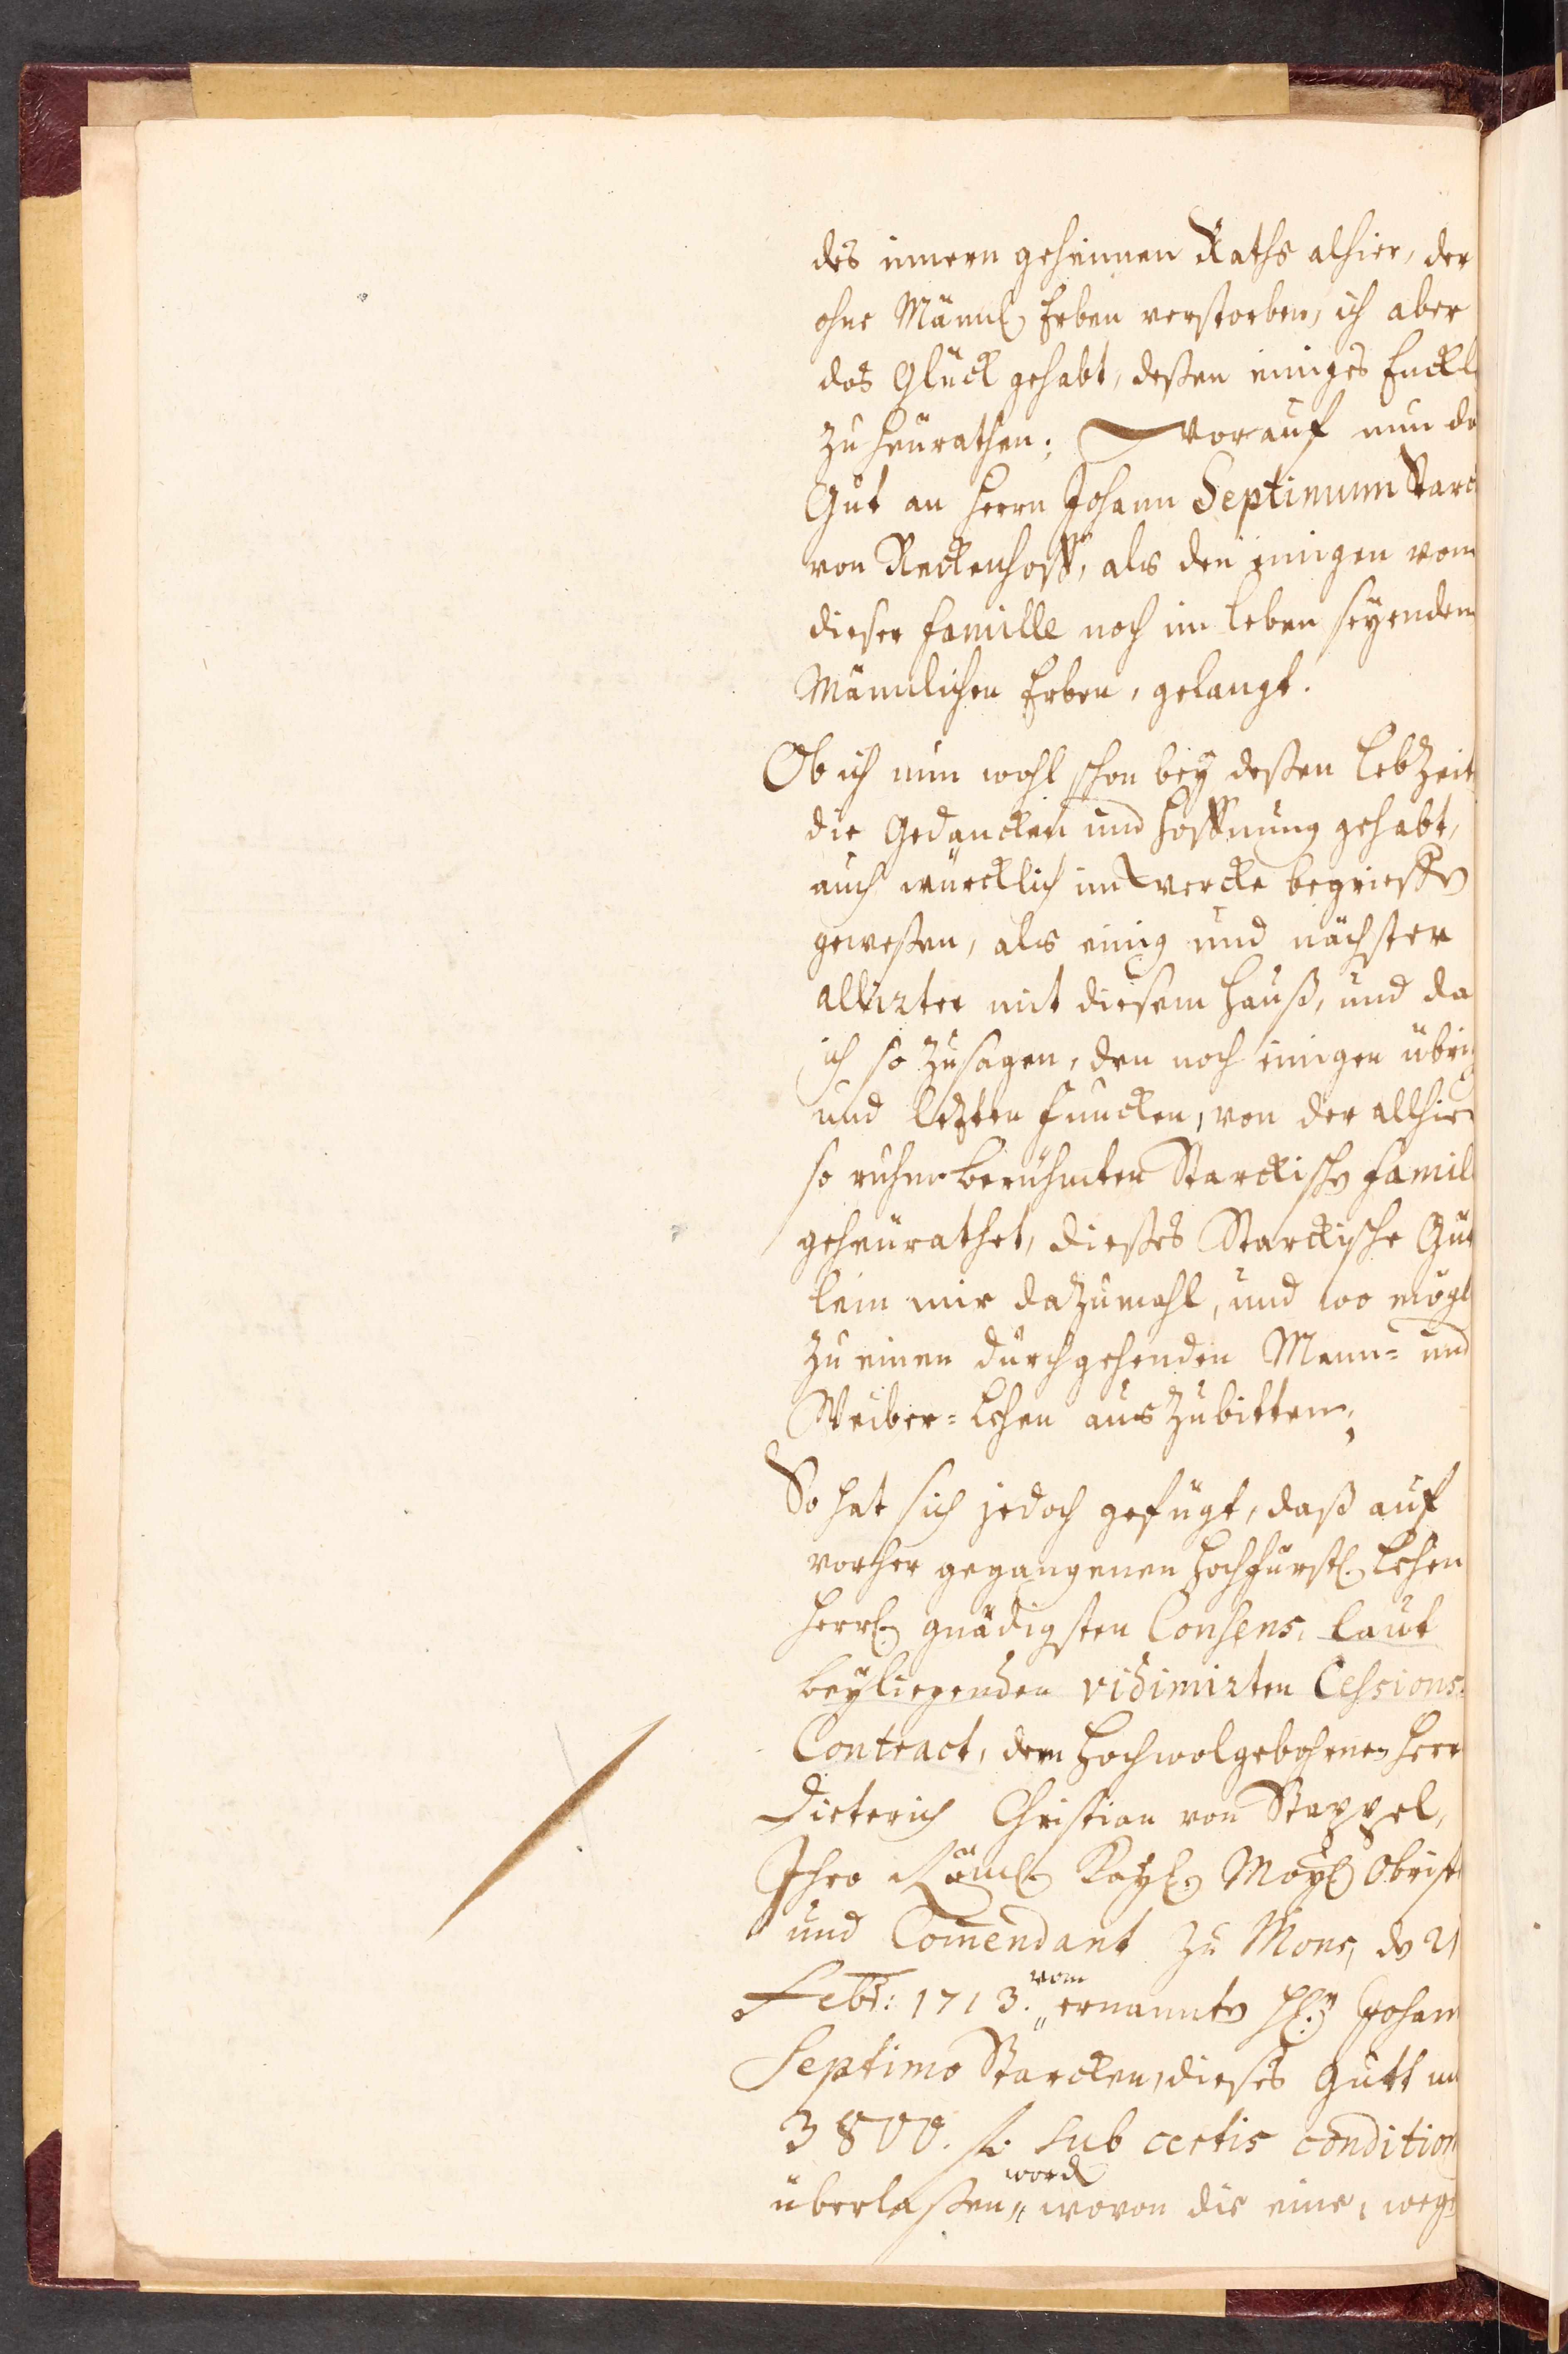 des innern geheimen Raths alhier, der
ohne Männl. Erben verstorben, ich aber
das Glück gehabt, deßen einiges Enckl
zu heurathen; Worauf nun da
Gut an Herrn Johann Septimum Starc
von Reckenhoff, als den einigen von
dieser Famille noch im Leben seyenden
Männlichen Erben, gelangt.
Ob ich nun wohl schon bey deßen Lebzeit
die Gedancken und Hoffnung gehabt,
auch würcklich im Wercke begrieffen
geweßen, als einig und nächster
allirter mit diesem Hauß, und da
ich so zusagen, den noch einigen übrig
und letzten Funcken, von der allhier
so ruhm berühmten Starckischen Famil
geheurathet, dießes Starckische Gut
lein mir dazumahl, und wo mögl
zu einen durchgehenden Mann- und
Weiber-Lehen auszubitten;
So hat sich jedoch gefügt, daß auf
vorher gegangenen Hochfürstl. Lehen
Herrl. gnädigsten Consens, laut
beyliegenden vidimirten Cessions-
Contract, dem Hochwolgebohrnen Herr
Dieterich Christian von Stappel,
Ihro Röml. Kayl. May. Obrist
und Comendant zu Mons, den 21
Febr: 1713. vom ernannten H. Johan
Septimo Starcken, dieses Gutt um
3800. fl. sub certis condition
überlaßen word wovon die eine, wege